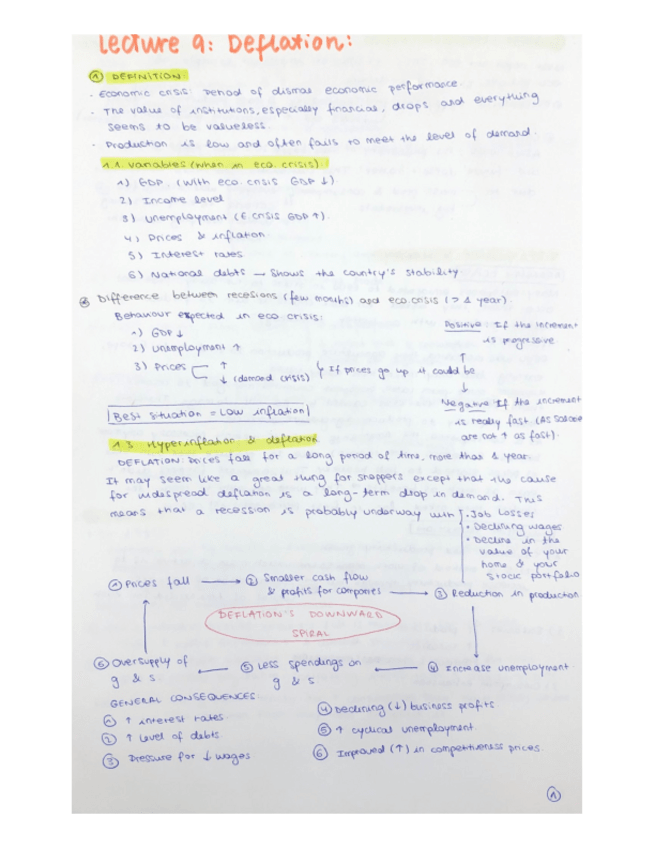 Lecture 9: Deflation:
1 DEFINITION:
· Economic crisis: Period of dismal economic performance.
· The value of institutions, especially financial, drops and everything
seems to be valueless.
· Production is low and often fails to meet the level of demand.
1.1. Variables (when in eco. crisis):
1) GDP. (With eco crisis GDP ↓).
2) Income level
3) Unemployment (E. crisis GDP ↑).
4) Prices & inflation.
5) Interest rates
6) National debts → Shows the country's stability
Difference between recesions (few months) and eco. crisis (> 1 year).
Behaviour expected in eco crisis:
1) GDP ↓
2) Unemployment ↑
3) Prices ↑
↓ (demand crisis)
If prices go up it could be
Positive: If the increment
is progressive
Negative: If the increment
is really fast (As salaries
are not ↑ as fast).
Best situation = Low inflation
1.3. Hyperinflation & deflation
DEFLATION: Prices fall for a long period of time, more than 1 year.
It may seem like a great thing for shoppers except that the cause
for widespread deflation is a long-term drop in demand. This
means that a recession is probably underway with
· Job Losses
· Declining wages
· Decline in the
value of your
home & your
stock portfolio
1 Prices fall → 2 Smaller cash flow
& profits for companies → 3 Reduction in production
DEFLATION'S DOWNWARD
SPIRAL
6 Oversupply of
g & s.
← 5 Less spendings on
g & s
← 4 Increase unemployment
GENERAL CONSEQUENCES:
1 ↑ interest rates
2 ↑ Level of debts
3 Pressure for ↓ wages
4 Declining (↓) business profits
5 ↑ cyclical unemployment
6 Improved (↑) in competitiveness prices.
1